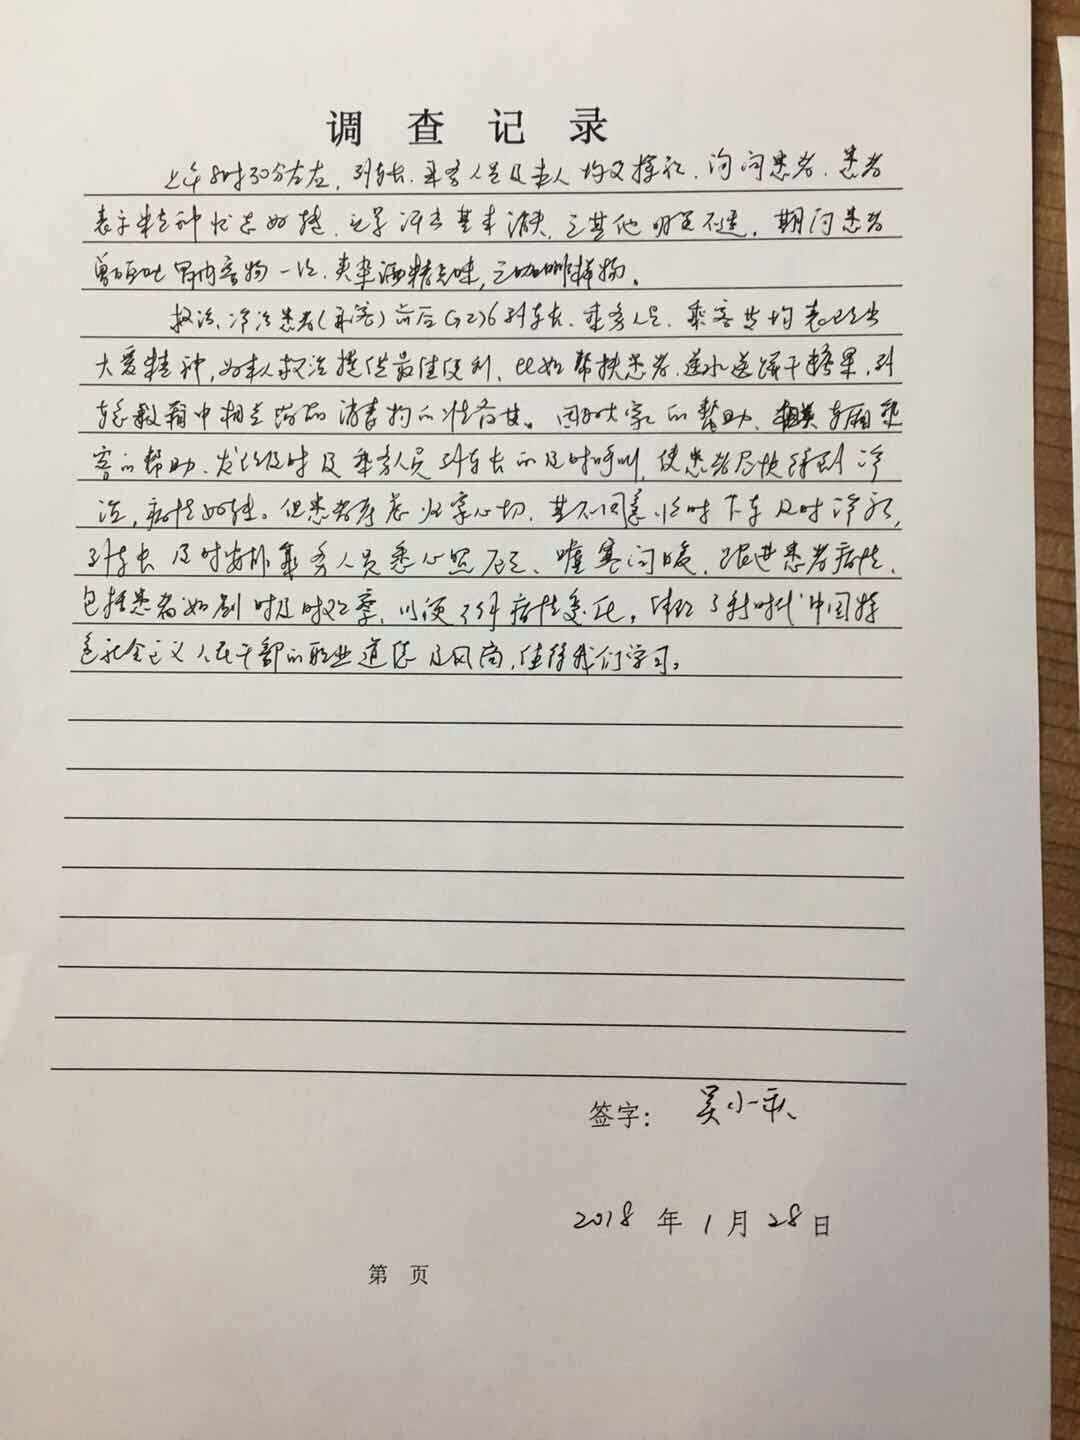 调查记录
上午8时30分左右,列车长、乘务人员及本人均又探视、询问患者,患者
表示精神状态好转,头晕冲击基本消失,无其他明显不适,期间患者
曾呕吐胃内容物一次,夹杂酒精气味,无咖啡样物。
救治、诊治患者(乘客)前后G236列车长、乘务人员、乘客皆均表现出
大爱精神,为本人救治提供最佳便利,比如帮扶患者、送水送饼干糖果,列
车急救箱中相关药品消毒物的准备等。因为大家的帮助、相关车厢乘
客的帮助、发现及时及乘务人员列车长的及时呼叫,使患者尽快得到诊
治,病情好转。但患者考虑归家心切,其不同意临时下车及时诊疗,
列车长及时安排乘务人员悉心照顾、嘘寒问暖、跟进患者病情,
包括患者如厕时及时观察,以便了解病情变化,体现了新时代中国特
色社会主义人民干部的职业道德及风尚,值得我们学习。
签字: 吴小
2018年1月28日
第 页